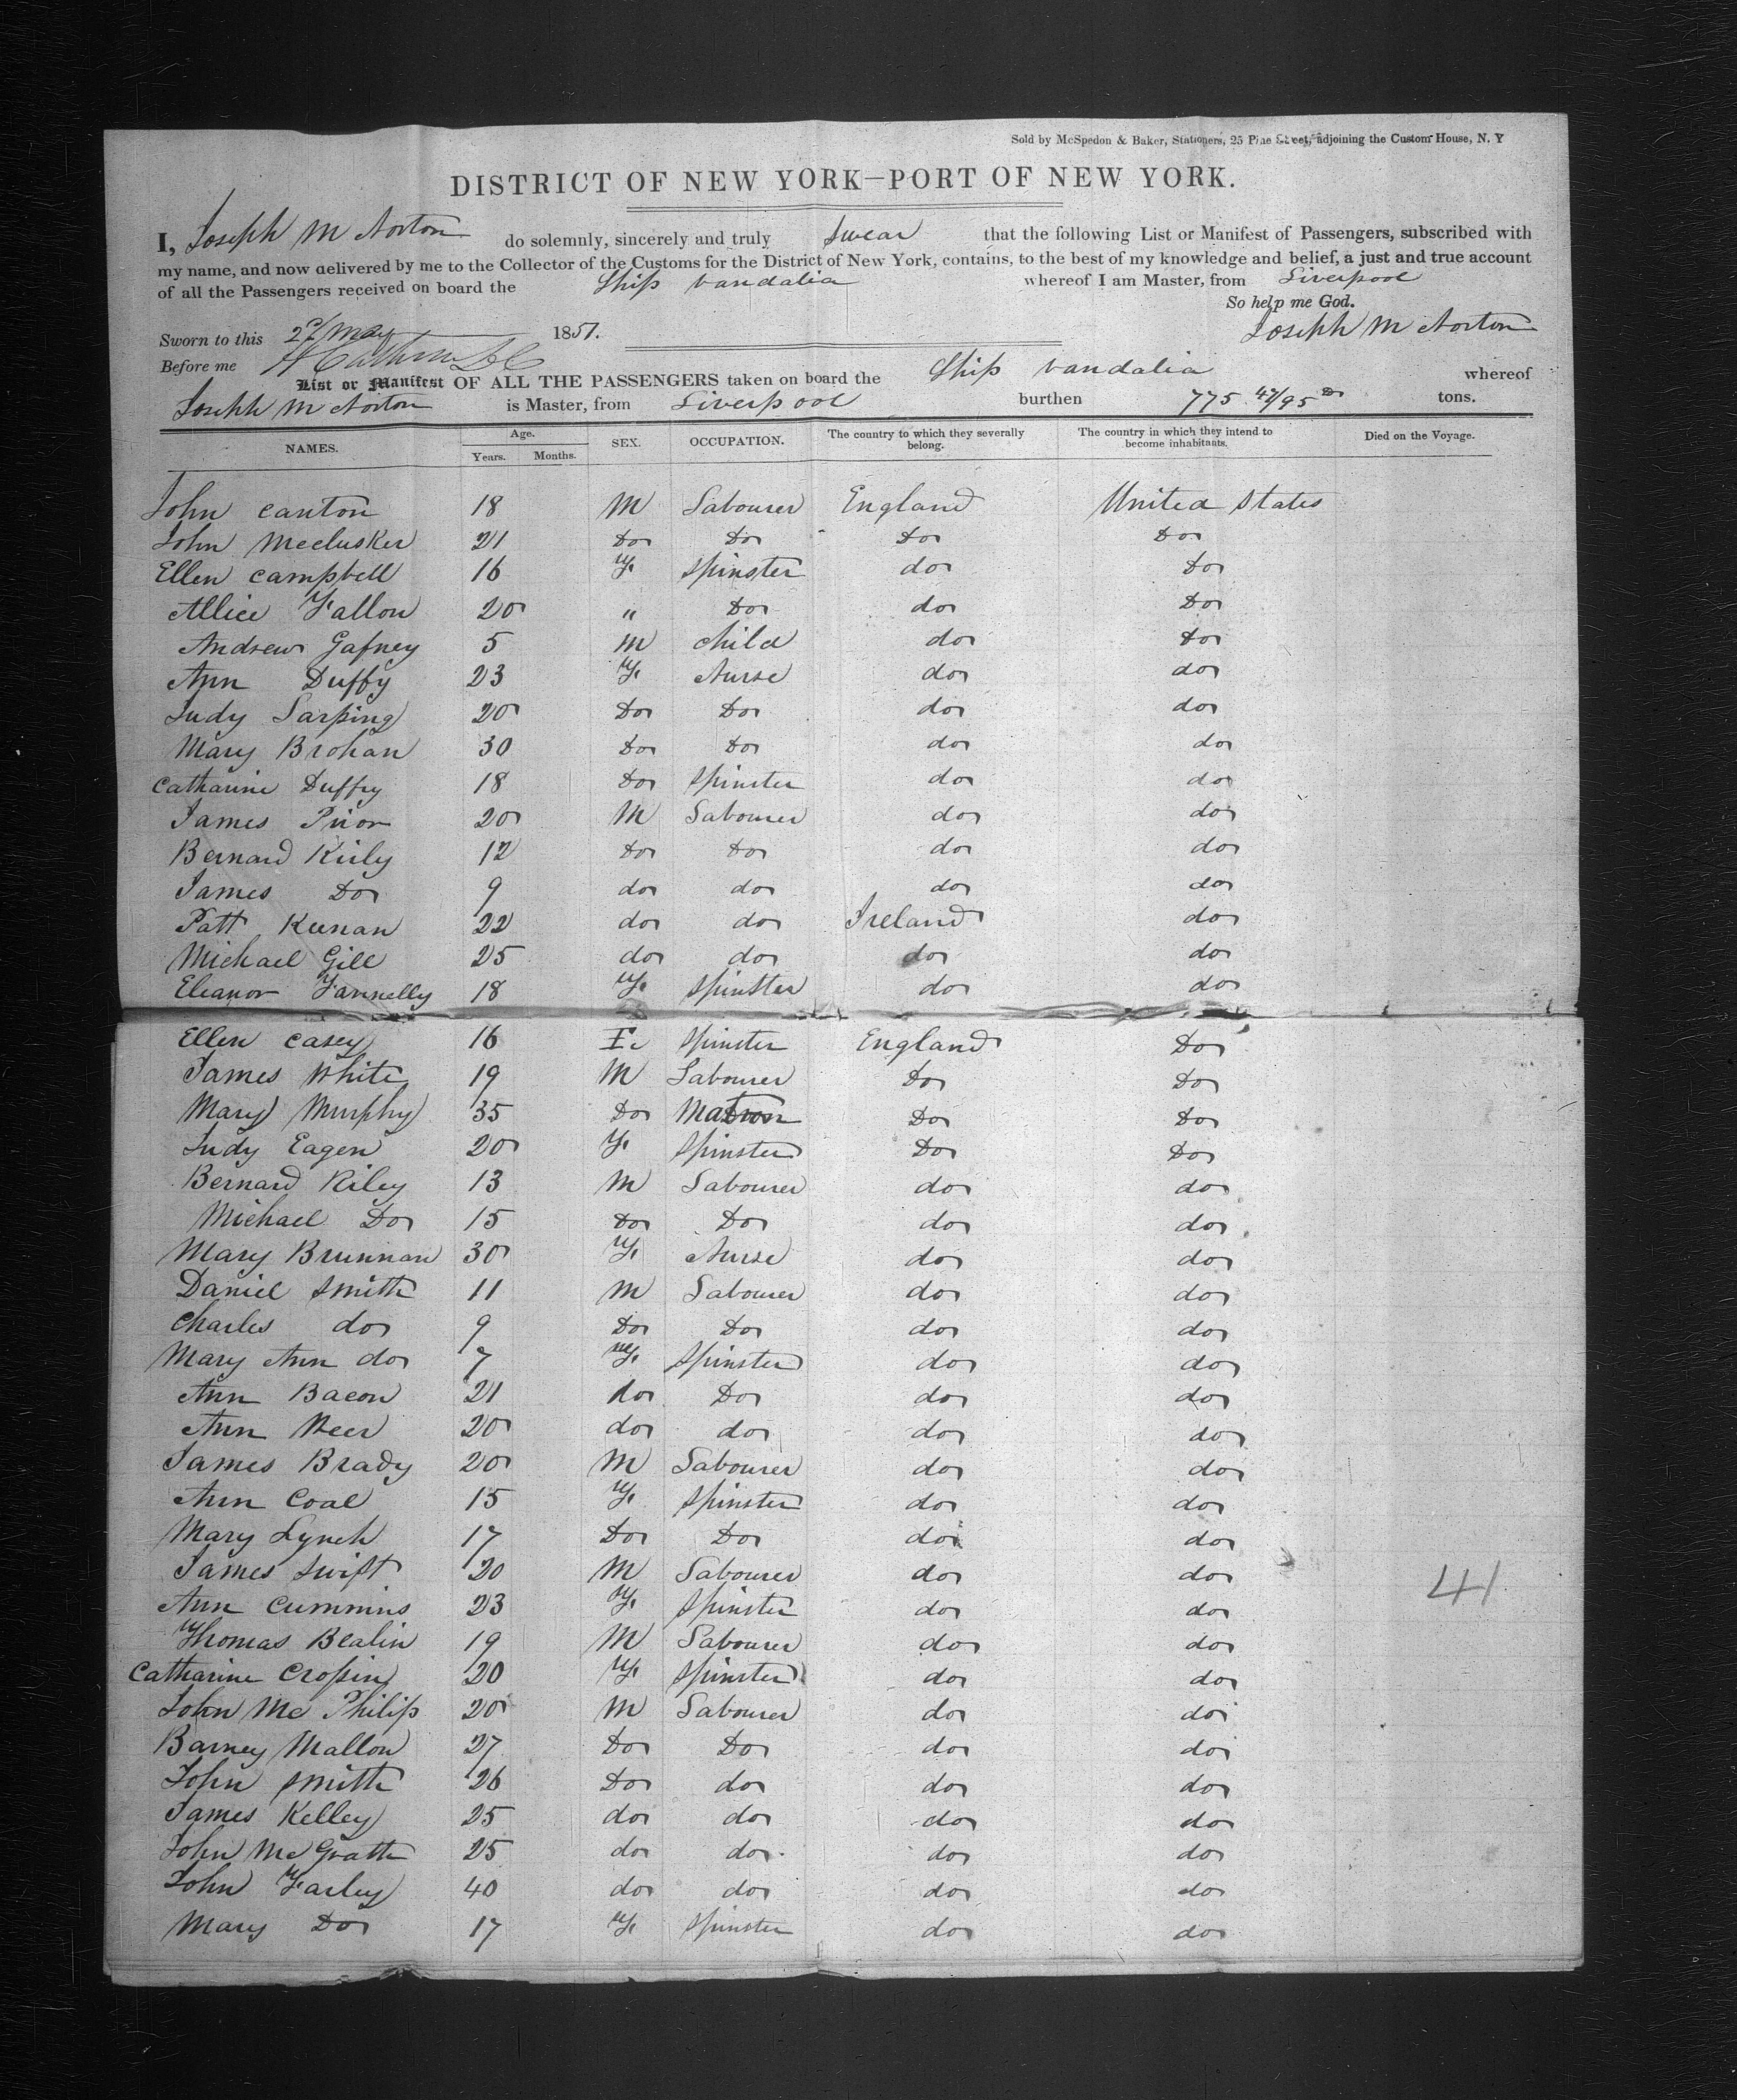 Sold by McSpedon & Baker, Stationers, 25 Pine Street, adjoining the Custom House, N. Y
DISTRICT OF NEW YORK—PORT OF NEW YORK.
I, Joseph M Norton do solemnly, sincerely and truly swear that the following List or Manifest of Passengers, subscribed with
my name, and now delivered by me to the Collector of the Customs for the District of New York, contains, to the best of my knowledge and belief, a just and true account
of all the Passengers received on board the Ship Vandalia whereof I am Master, from Liverpool
So help me God.
Sworn to this May 1851. Joseph M Norton
Before me
List or Manifest OF ALL THE PASSENGERS taken on board the Ship Vandalia whereof
Joseph M Norton is Master, from Liverpool burthen 775 47/95 tons.
NAMES. Age. Years. Months. SEX. OCCUPATION. The country to which they severally belong. The country in which they intend to become inhabitants. Died on the Voyage.
John Canton 18 M Labourer England United States
John McClusker 21 Do Do Do Do
Ellen Campbell 16 F. Spinster do Do
Allice Fallon 20 " Do do Do
Andrew Gafney 5 M Child do Do
Ann Duffy 23 F. Nurse do do
Judy Larping 20 Do Do do do
Mary Brohan 30 Do Do do do
Catharine Duffey 18 Do Spinster do do
James Prior 20 M Labourer do do
Bernard Kiely 12 Do Do do do
James Do 9 do do do do
Patt Keenan 22 do do Ireland do
Michael Gill 25 do do do do
Eleanor Fannelly 18 F. Spinster do do
Ellen Casey 16 F. Spinster England Do
James White 19 M Labourer Do Do
Mary Murphy 35 Do Matron Do Do
Judy Eagen 20 F. Spinster Do Do
Bernard Riley 13 M Labourer do do
Michael Do 15 Do Do do do
Mary Brunnan 30 F. Nurse do do
Daniel Smith 11 M Labourer do do
Charles do 9 Do Do do do
Mary Ann do 7 F. Spinster do do
Ann Bacon 21 do Do do do
Ann Weer 20 do do do do
James Brady 20 M Labourer do do
Ann Coal 15 F. Spinster do do
Mary Lynch 17 Do Do do do
James Swift 20 M Labourer do do
41
Ann Cummins 23 F. Spinster do do
Thomas Bealin 19 M Labourer do do
Catharine Crossin 20 F. Spinster do do
John Mc Philip 20 M Labourer do do
Barney Mallon 27 Do Do do do
John Smith 26 Do do do do
James Kelley 25 do do do do
John McGrath 25 do do do do
John Farley 40 do do do do
Mary Do 17 F. Spinster do do